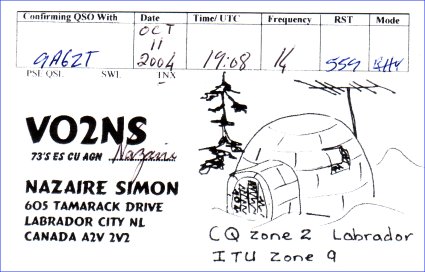 Confirming QSO With Date Time/ UTC Frequency RST Mode
9A6ZT OCT 11 2004 19:08 14 559
PSE QSL SWL TNX
VO2NS
73'S ES CU AGN Nazaire
NAZAIRE SIMON
605 TAMARACK DRIVE
LABRADOR CITY NL
CANADA A2V 2V2
CQ zone 2 Labrador
ITU Zone 9